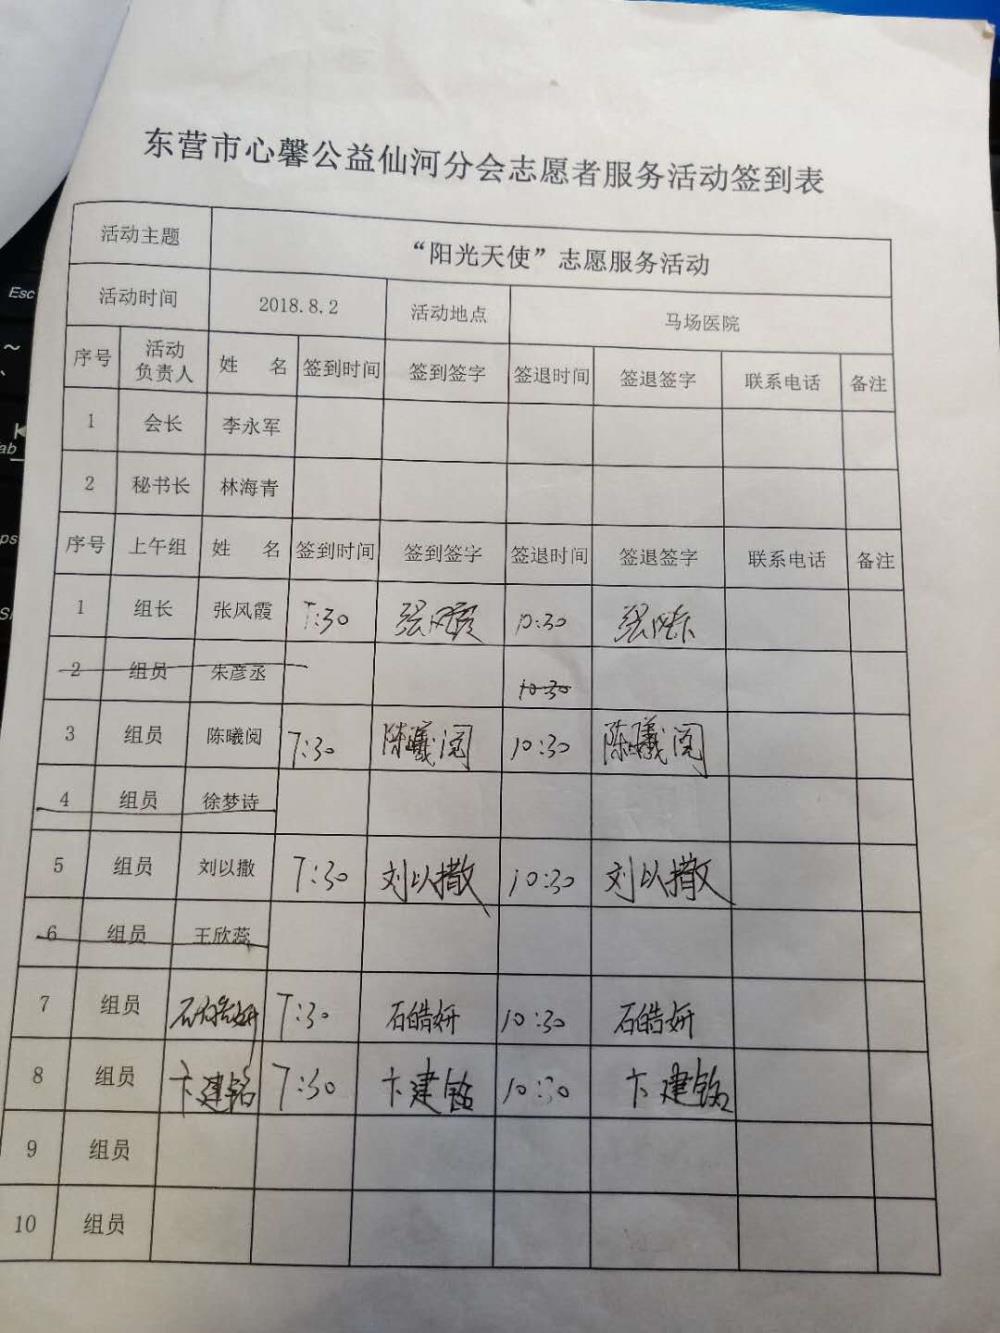 东营市心馨公益仙河分会志愿者服务活动签到表
活动主题 “阳光天使”志愿服务活动
活动时间 2018.8.2 活动地点 马场医院
序号 活动负责人 姓 名 签到时间 签到签字 签退时间 签退签字 联系电话 备注
1 会长 李永军
2 秘书长 林海青
序号 上午组 姓 名 签到时间 签到签字 签退时间 签退签字 联系电话 备注
1 组长 张风霞 7:30 张风霞 10:30
2 组员 朱彦丞 10:30
3 组员 陈曦阅 7:30 陈曦阅 10:30 陈曦阅
4 组员 徐梦诗
5 组员 刘以撒 7:30 刘以撒 10:30 刘以撒
6 组员 王欣蕊
7 组员 石皓妍 7:30 石皓妍 10:30 石皓妍
8 组员 卞建铭 7:30 卞建铭 10:30 卞建铭
9 组员
10 组员
Esc